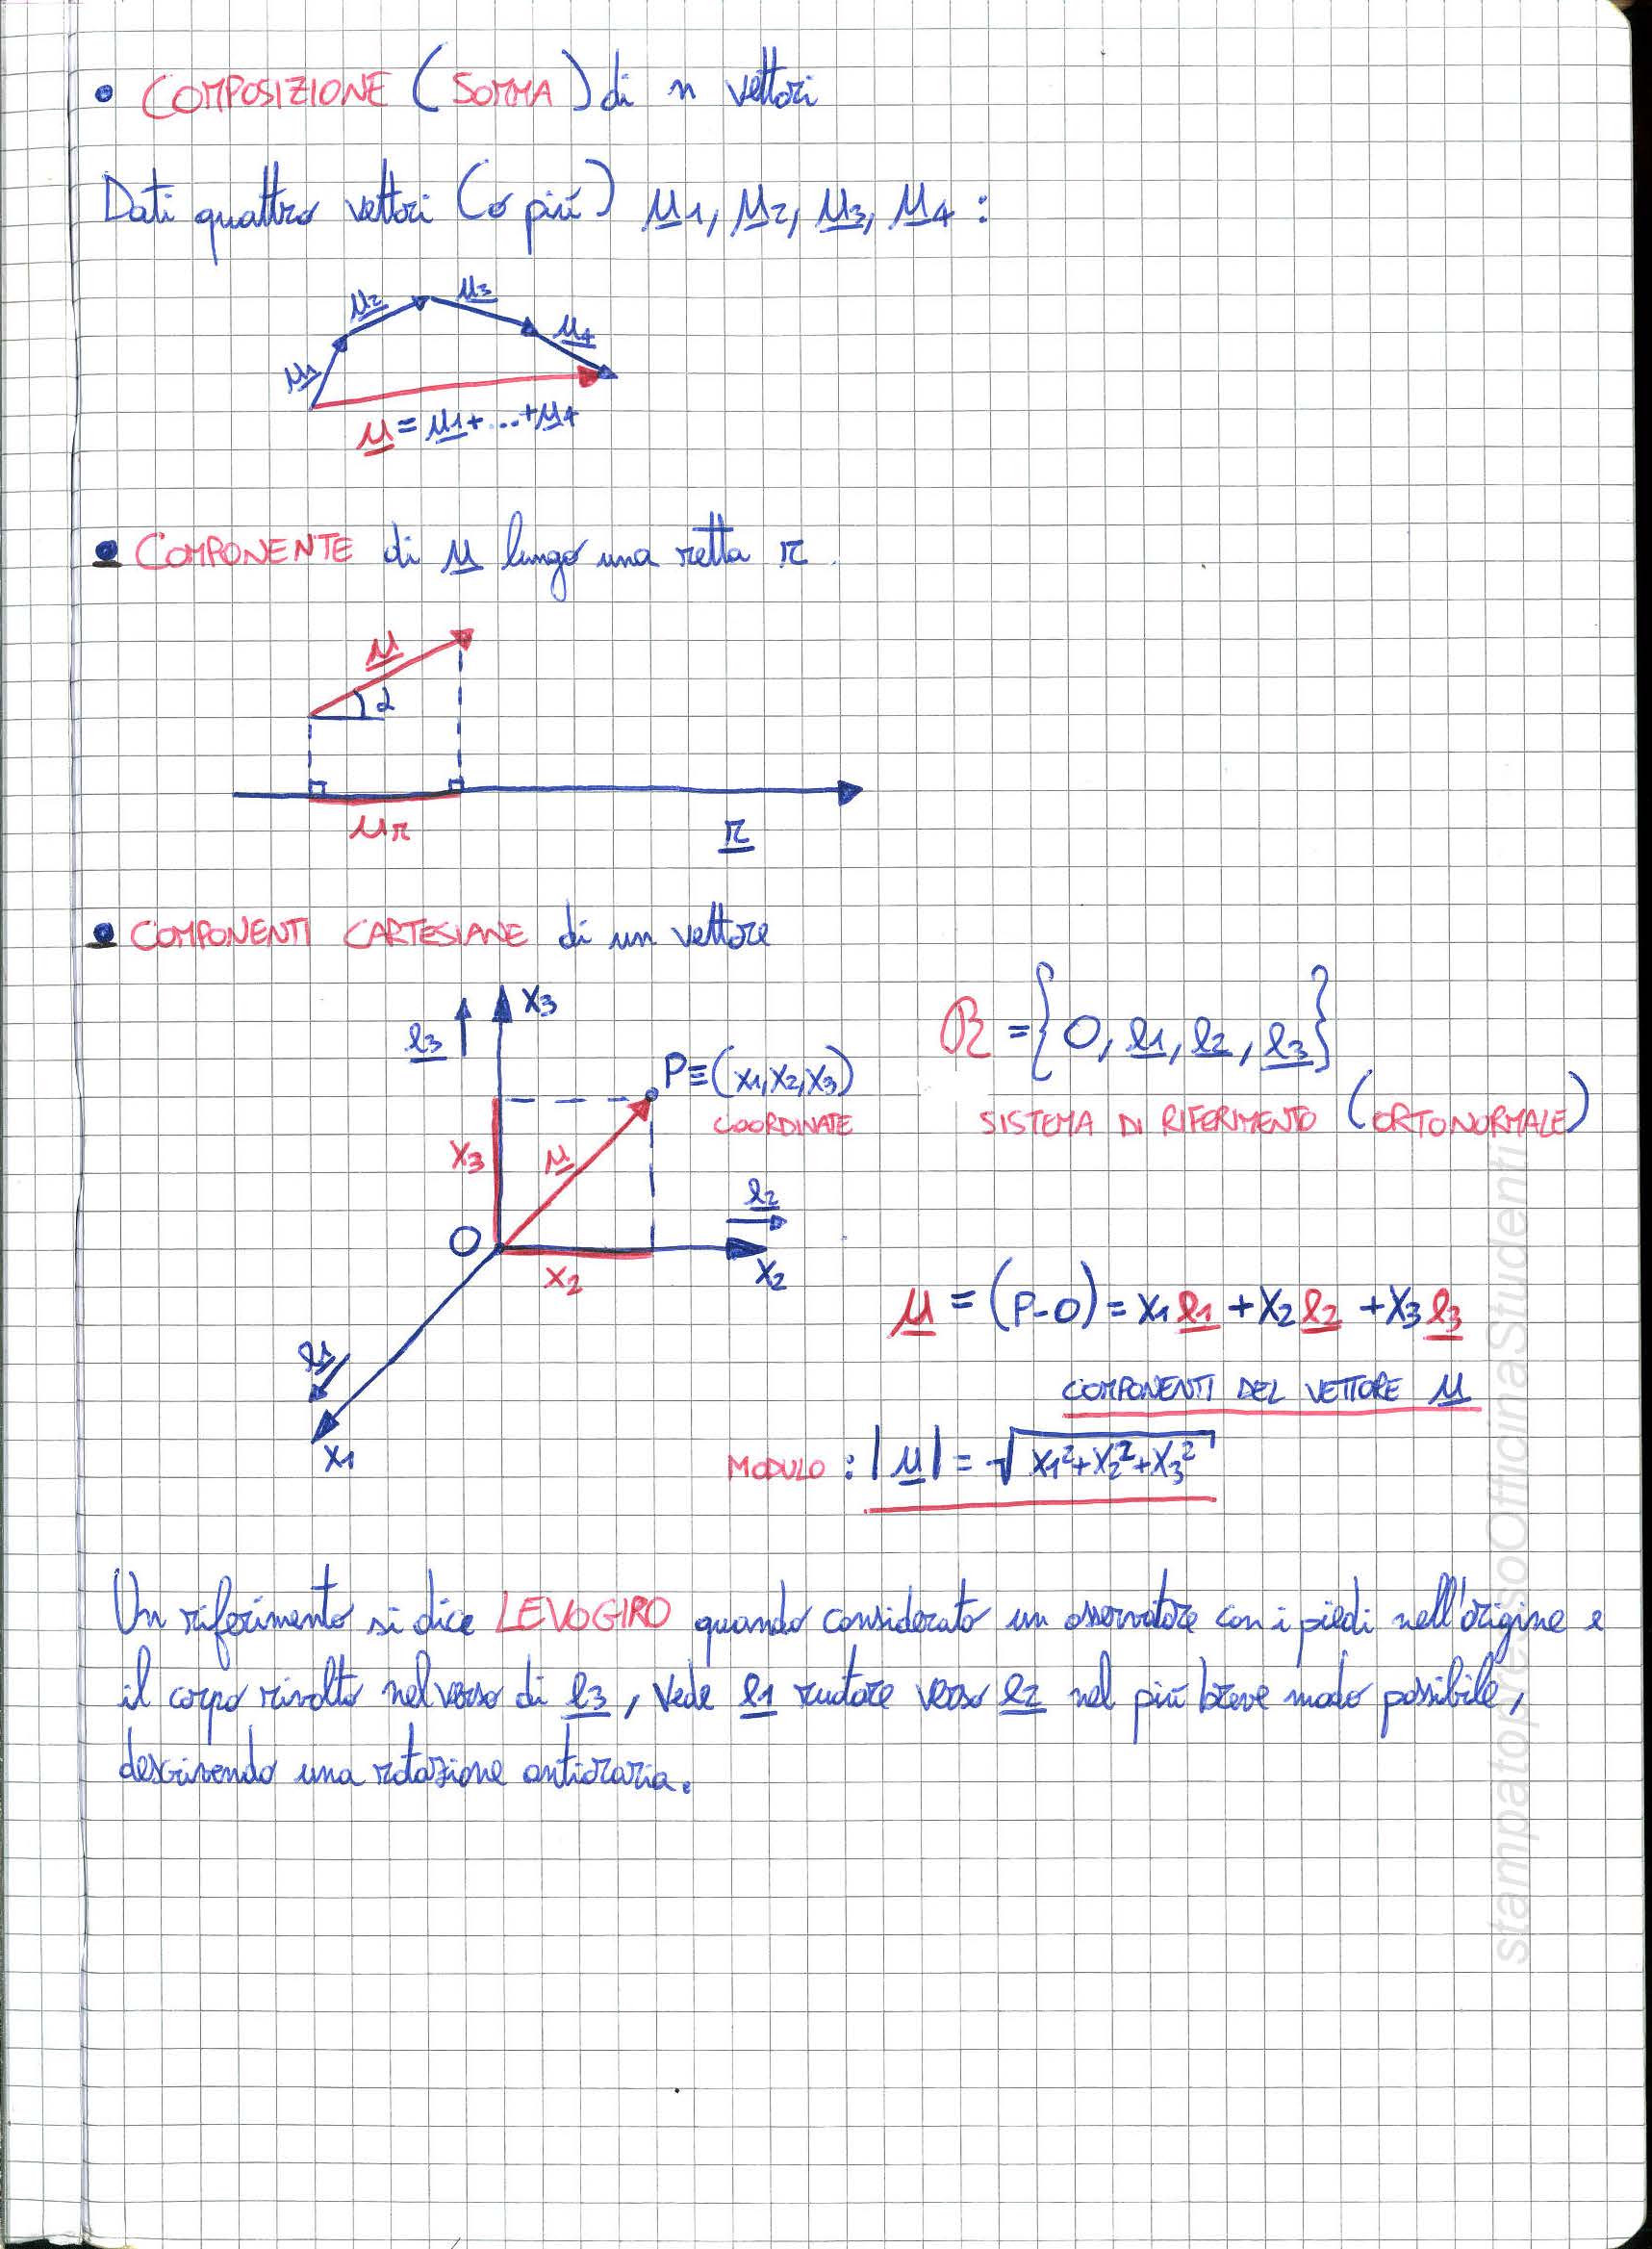 • COMPOSIZIONE (SOMMA) di n vettori
Dati quattro vettori (o più) u1, u2, u3, u4 :
u1
u2
u3
u4
u = u1+...+u4
• COMPONENTE di u lungo una retta r.
u
α
ur
r
• COMPONENTI CARTESIANE di un vettore
x3
e3
P≡(x1,x2,x3)
COORDINATE
R = {O, e1, e2, e3}
SISTEMA DI RIFERIMENTO (ORTONORMALE)
x3
u
e2
O
x2
x2
e1
x1
u = (P-O) = x1e1 + x2e2 + x3e3
COMPONENTI DEL VETTORE u
MODULO : |u| = √x1²+x2²+x3²
Un riferimento si dice LEVOGIRO quando considerato un osservatore con i piedi nell'origine e
il corpo rivolto nel verso di e3, vede e1 ruotare verso e2 nel più breve modo possibile,
descrivendo una rotazione antioraria.
stampatopressoOfficinaStudenti